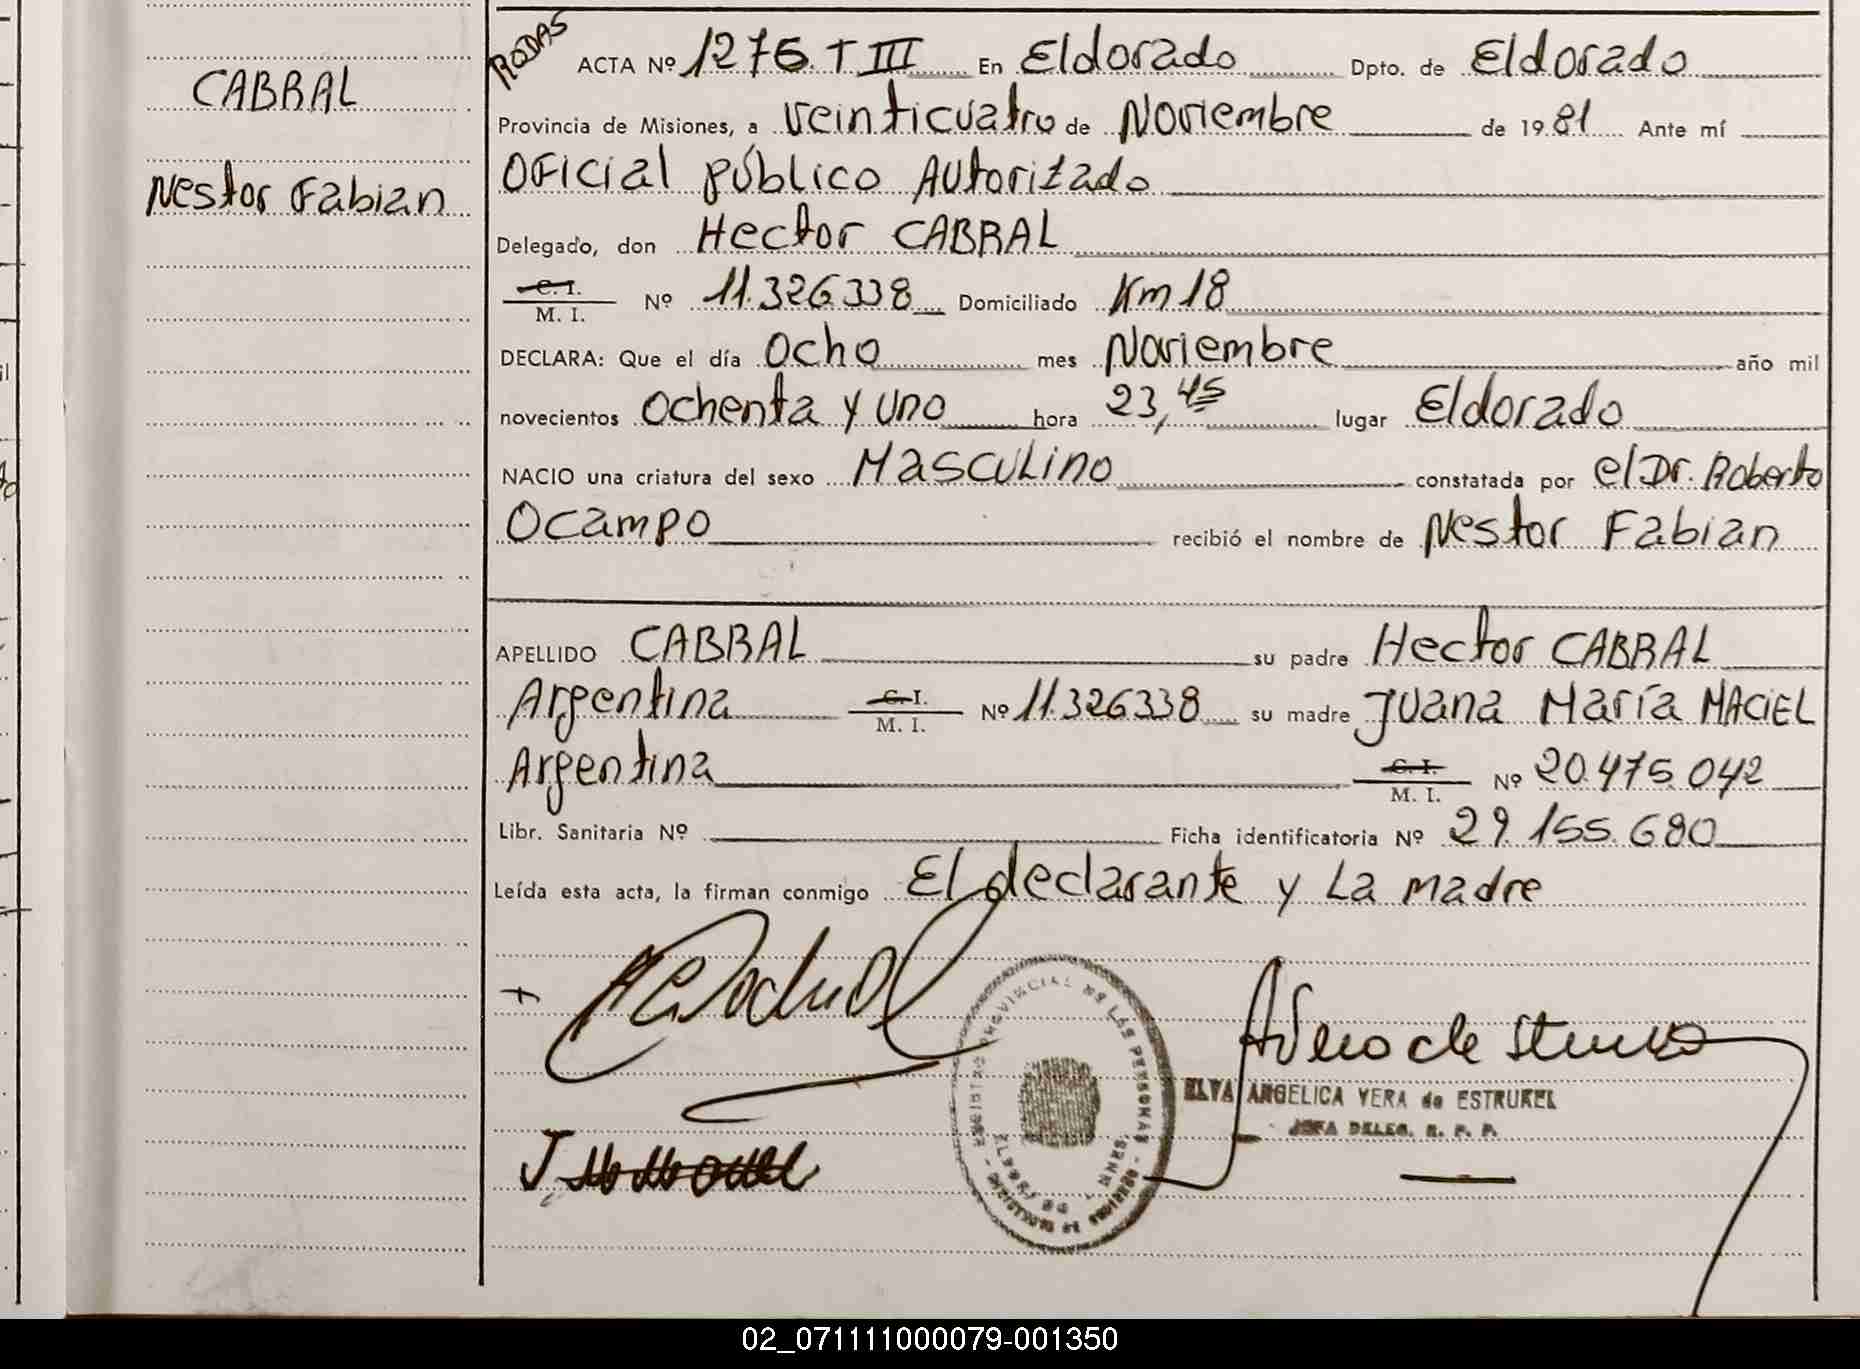 CABRAL
Nestor Fabian
RODAS
ACTA Nº 1276. T III En Eldorado Dpto. de Eldorado
Provincia de Misiones, a veinticuatro de Noviembre de 1981 Ante mí
Oficial público Autorizado
Delegado, don Hector CABRAL
C. I.
M. I. Nº 11.326338 Domiciliado Km 18
DECLARA: Que el día Ocho mes Noviembre año mil
novecientos Ochenta y uno hora 23,45 lugar Eldorado
NACIO una criatura del sexo Masculino constatada por el Dr. Roberto
Ocampo recibió el nombre de Nestor Fabian
APELLIDO CABRAL su padre Hector CABRAL
Argentina C. I. M. I. Nº 11.326338 su madre Juana María MACIEL
Argentina C. I. M. I. Nº 20.475.042
Libr. Sanitaria Nº Ficha identificatoria Nº 29.155.680
Leída esta acta, la firman conmigo El declarante y La madre
REGISTRO PROVINCIAL DE LAS PERSONAS
ELVA ANGELICA VERA de ESTRUKEL
JEFA DELEG. R. P. P.
02_071111000079-001350